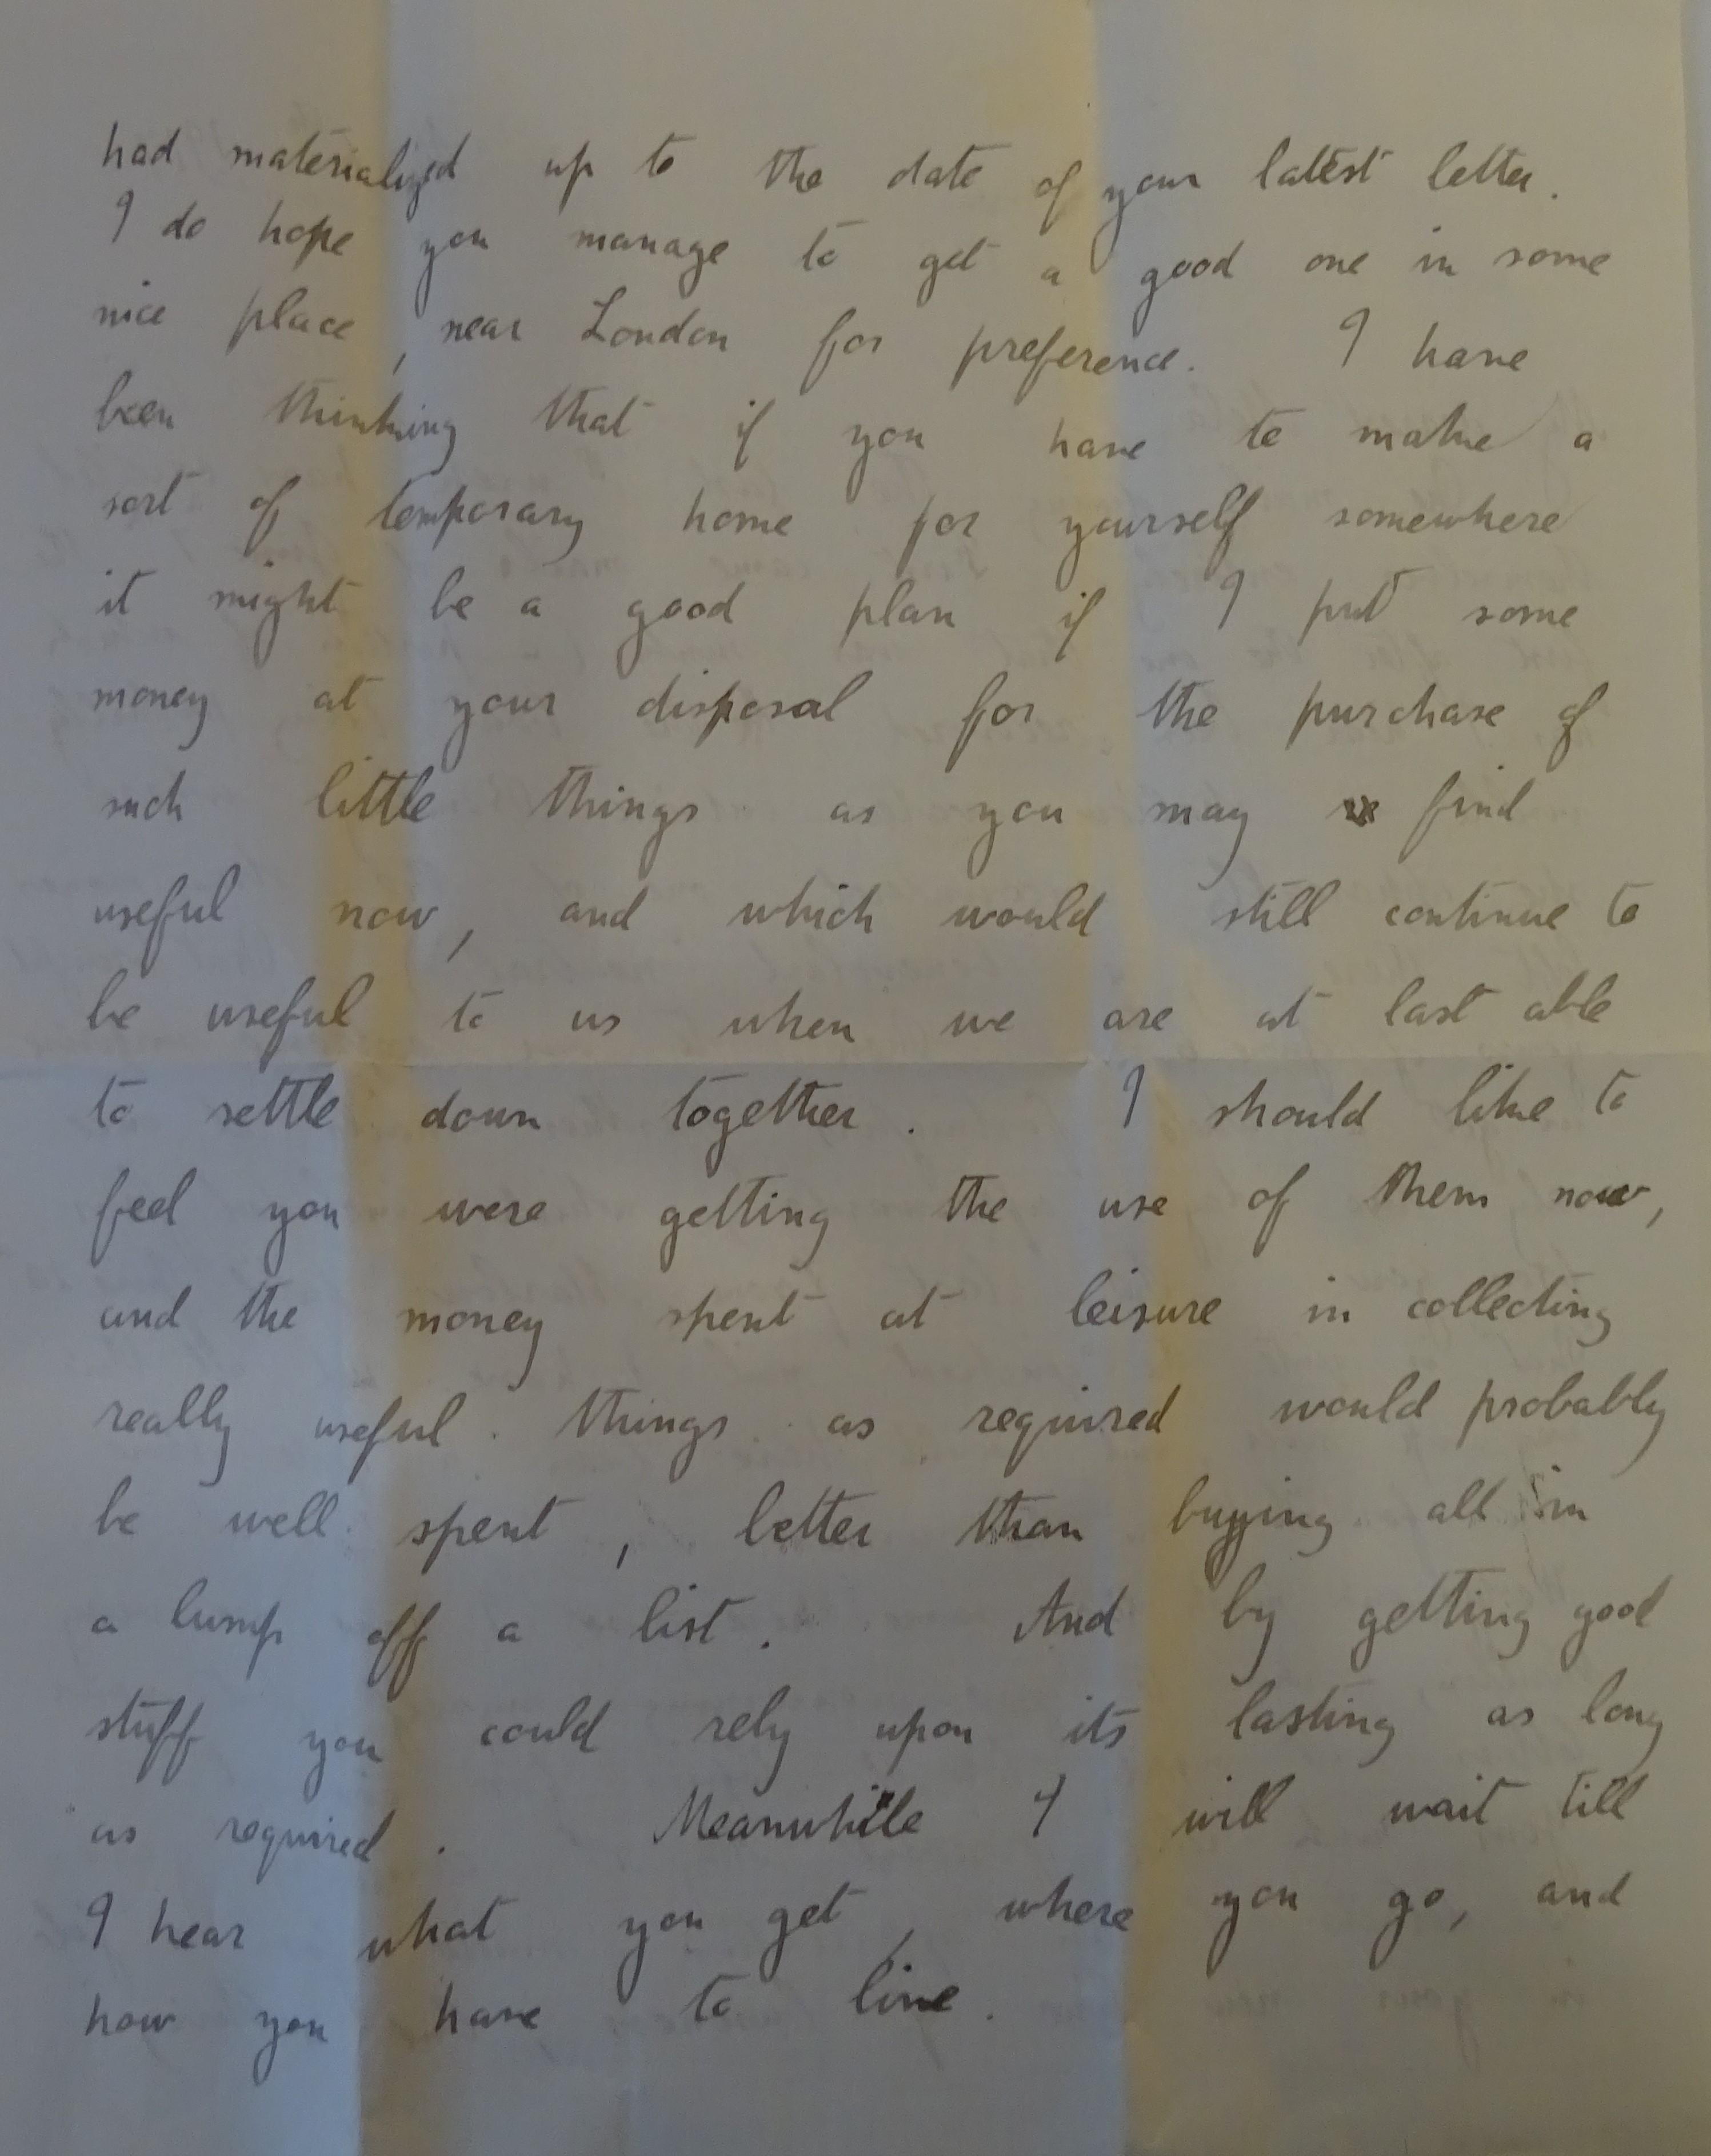 had materialized up to the date of your latest letter.
I do hope you manage to get a good one in some
nice place, near London for preference. I have
been thinking that if you have to make a
sort of temporary home for yourself somewhere
it might be a good plan if I put some
money at your disposal for the purchase of
such little things as you may find
useful now, and which would still continue to
be useful to us when we are at last able
to settle down together. I should like to
feel you were getting the use of them now,
and the money spent at leisure in collecting
really useful things as required would probably
be well spent, better than buying all in
a lump off a list. And by getting good
stuff you could rely upon its lasting as long
as required. Meanwhile I will wait till
I hear what you get, where you go, and
how you have to live.